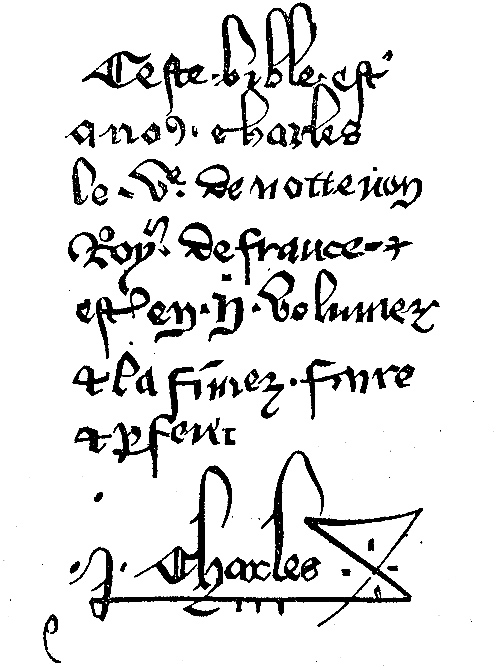 Ceste bible est
a nous charles
le Ve de notre non
Roy de france et
est en ij volumez
et la fimez faire
et
Charles